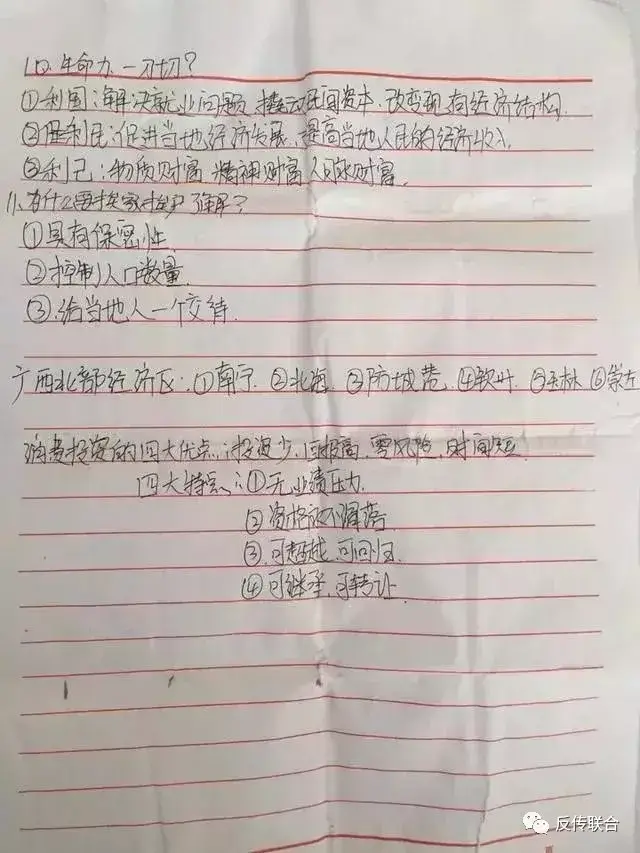 10. 生命力一切?
①利国:解决就业问题,撬动民间资本,改变现有经济结构.
②利民:促进当地经济发展,提高当地人民的经济收入
③利己:物质财富 精神财富 人际财富.
11、为什么要挨家挨户了解?
①具有保密性.
②控制人口数量.
③.给当地人一个交待.
广西北部经济区:①南宁.②北海.③防城港.④钦州.⑤玉林.⑥崇左
消费投资的四大优点:投资少,回报高,零风险,时间短.
四大特点:①无业绩压力.
②资格永不滑落.
③.可超越.可回归.
④可继承.可转让
反传联合